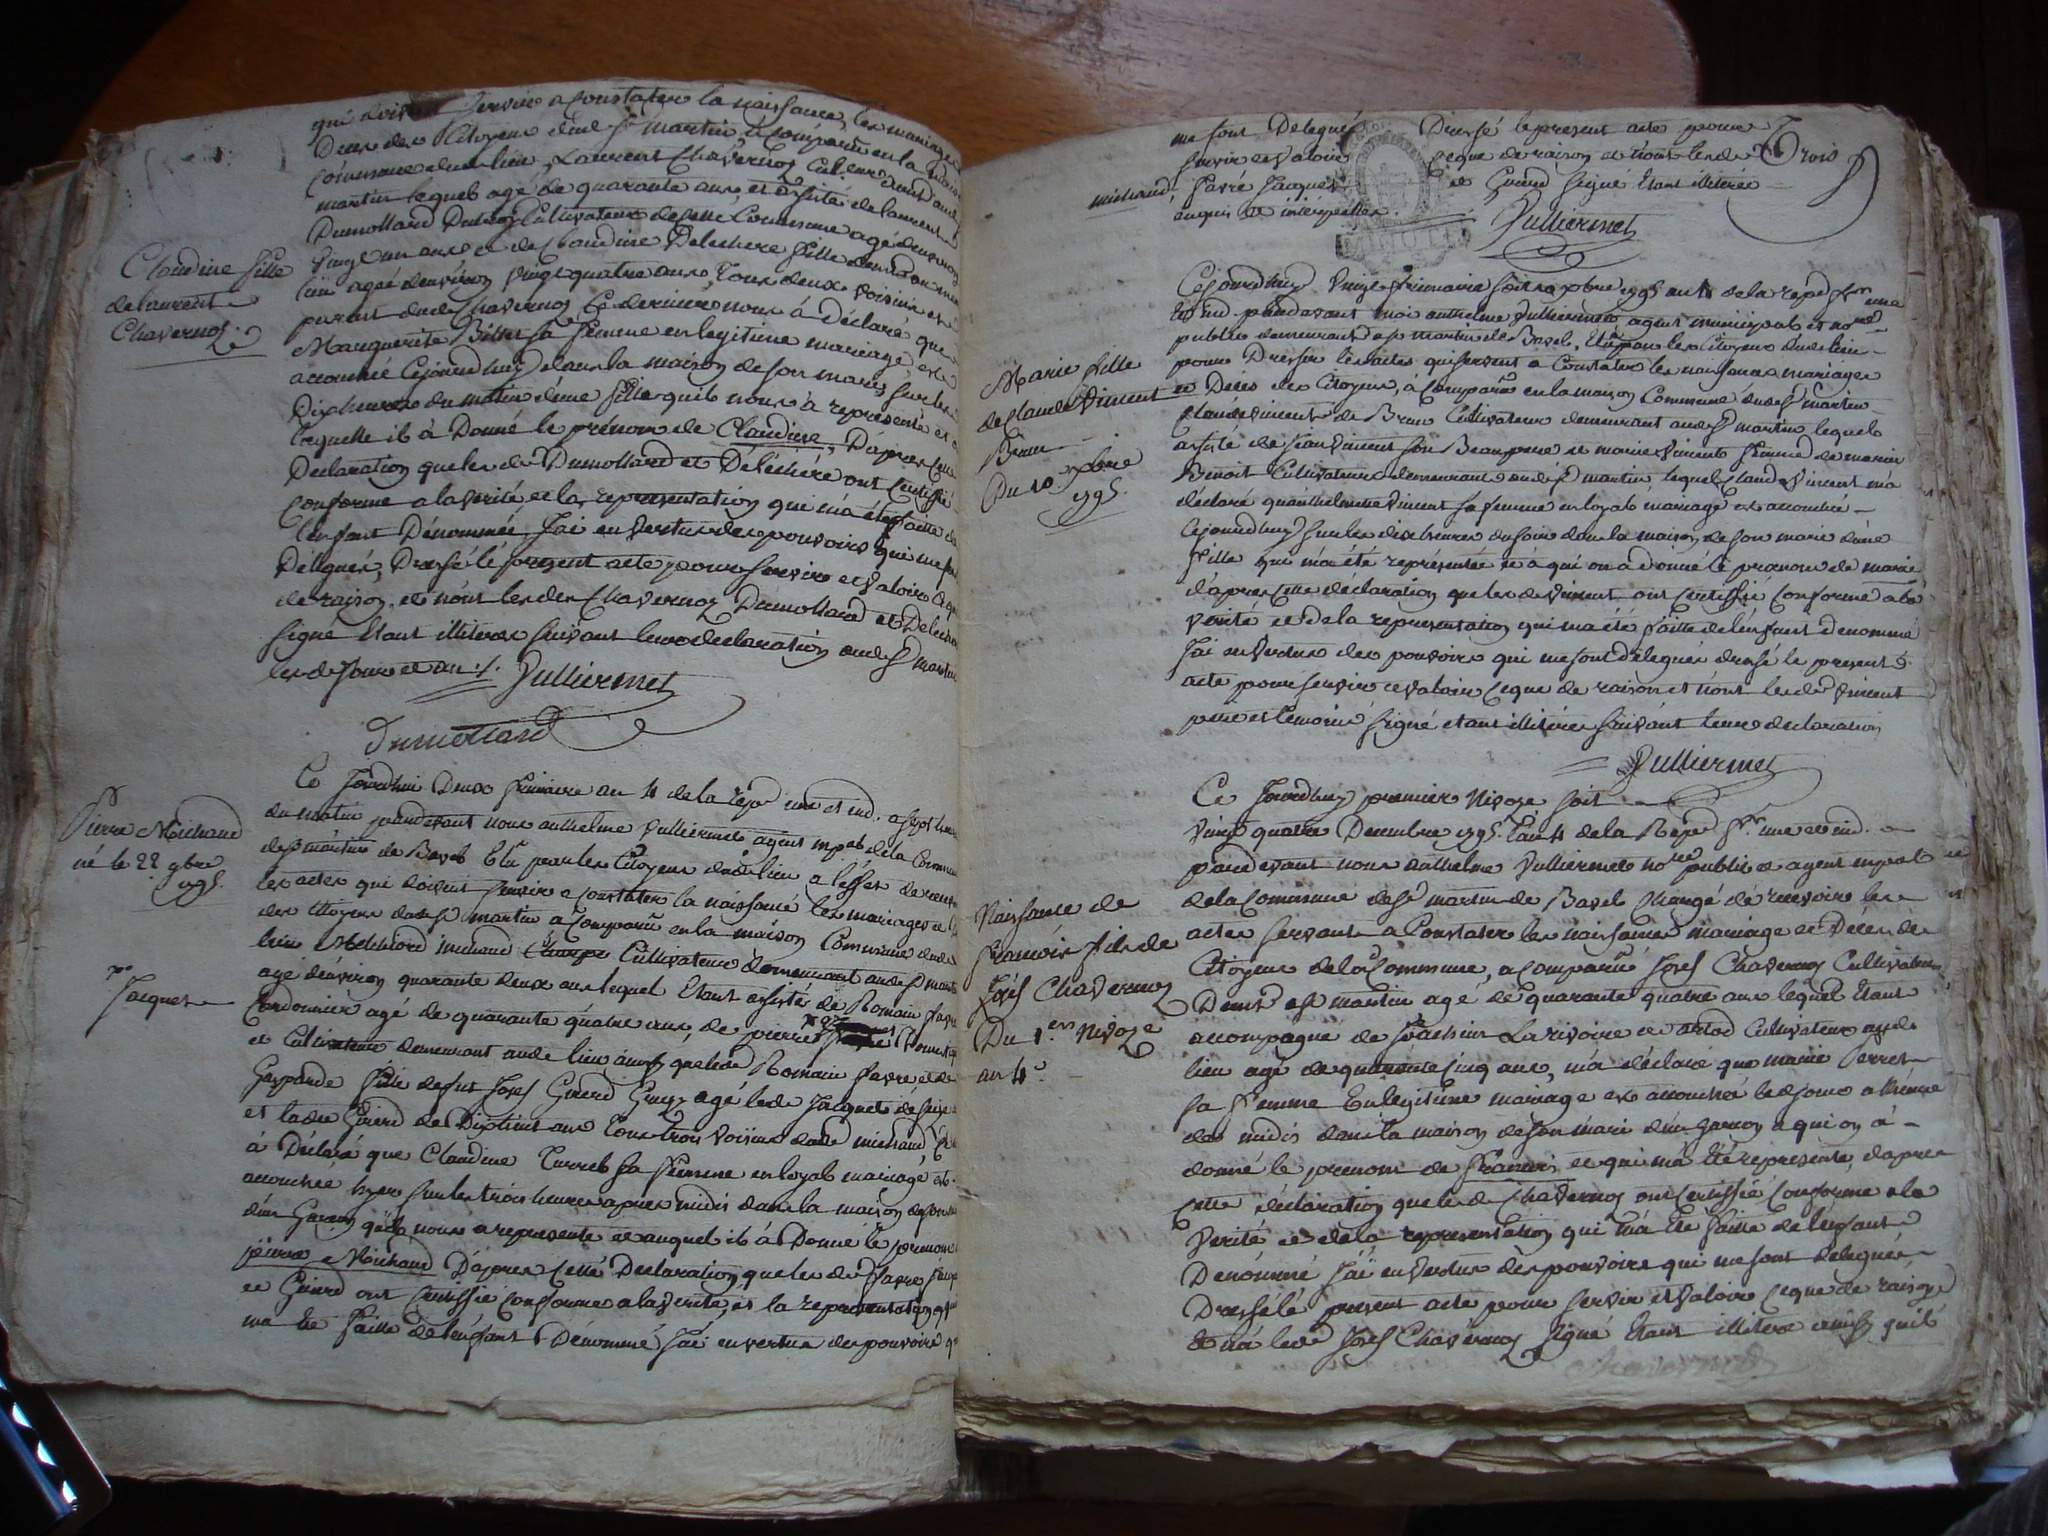 qui doivent servir a constater la naissance, les mariages
Deces des Citoyens dud St martin, à comparu en la maison
commune dud lieu, Laurent Chavernoz Cult.eur demt aud St
martin lequel agé de quarante ans, et assisté de laurent
Dumollard Cultivateur de cette Commune agé denviron
vingt un ans, et de Claudine Delechere fille demt au me
lieu agée denviron vingt quatre ans, Tous deux voisins et
parent dud Chavernoz Ce dernier nous à Déclaré que
Marguerite Billet sa femme en legitime mariage, est
accouchée Cejourdhuy dans la maison de son marie, sur les
Dix heures du matin d'une fille quil nous à representé et a
laquelle il à Donné le prénom de Claudine, D'apres cette
Déclaration que les de Dumollard et Deléchére ont Certiffié
conforme a la verité et la representation qui m'a été faitte de
l'enfant Dénommée, Jai en vertus des pouvoirs qui me sont
Délegués, Dressé le present acte pour servir et valoir ce que
de raison, et n'ont les des Chavernoz Dumollard et Delechere
signé Etant illiteres suivant leurs declaration aud St martin
les de jour et an ./. Vulliermet
Dumollard
Claudine fille
de laurent
Chavernoz
Ce Jourdhui Deux frimaire an 4 de la Repe une et ind. a sept heures
du matin pardevant nous anthelme Vulliermet agent mpal de la Commune
de St martin de Bavel Elu par les Citoyens dud lieu a l'effet de recevoir
les actes qui doivent servir a constater la naissance les mariages et
des Citoyens dud St martin à comparu en la maison Commune dud
lieu Melchiord michaud Cultivateur demeurant aud St martin
agé d'environ quarante deux ans lequel Etant assisté de Romain favre
Cordonnier agé de quarante quatre ans, de pierre
et Cultivateur demeurant aud lieu ainsy que led Romain favre et de
Gasparde fille de fut Josef Guerd agé led Jacquet de seize
et lad Guerd de Dixhuit ans Tous trois voisins dud michaud,
à Déclaré que Claudine Turrel sa femme en loyal mariage est
accouchée hyer sur les trois heures apres midis dans la maison de son mari
d'un Garcon quil nous a representé et auquel il à Donné le prenom
pierre Michaud D'apres cette Declaration que les de favre Jacquet
et Guerd ont Certiffié conforme a la verité, et la representation qui
ma Ete faitte de l'enfant Dénommé Jai en vertus des pouvoirs qui
Pierre Michaud
né le 22 9bre
1795.
Jacquet
me sont Delegués Dressé le present acte pour
servir et valoir ceque de raison et n'ont les de
michaud, favre Jacquet et Guerd signé Etant illiterés
enquis et interpellés. Vulliermet
Trois
Cejourdhuy Vingt frimaire soit 10 xbre 1795 an 4 de la repe fse une
et ind. pardevant moi anthelme Vulliermet agent municipal et nore
public demeurant a St martin de Bavel, Elu par les Citoyens dud lieu
pour Dresser les actes qui servent a Constater les naissances mariages
et Décés des Citoyens, à comparu en la maison Commune dud St martin
Claude vincent de Brun Cultivateur demeurant aud St martin lequel
assisté de Jean vincent son Beau pere et marie vincent femme de marin
Benoit Cultivateurs demeurants aud St martin lequel Claude Vincent ma
déclaré quanthelmette Vincent sa femme en loyal mariage est accouchée
Cejourdhuy sur les dix heures du soir dans la maison de son marie d'une
fille qui m'a été représentée et à qui on a donné le prenom de marie
d'apres cette déclaration que les de Vincent ont Certiffié Conforme a la
verité et de la representation qui ma été faitte de l'enfant denommé
Jai en vertus des pouvoirs qui me sont delegués dressé le present
acte pour servir et valoir ce que de raison et n'ont les de vincent
pere et temoins signé etant illiteres suivant leurs declaration
Vulliermet
Marie fille
de Claude Vincent
Brun
Du 10. xbre
1795.
Ce Jourdhuy premier Nivoze soit
vingt quatre Decembre 1795. l'an 4 de la Repe fse une et ind.
pardevant nous anthelme Vulliermet nore public et agent mpal
de la Commune de St martin de Bavel chargé de recevoir les
actes servants a Constater les naissances mariage et Décés des
Citoyens de la de Commune, a comparu Josef Chavernoz Cultivateur
Demt a St martin agé de quarante quatre ans lequel Etant
accompagné de Larivoire Cultivateur aud
lieu agé de quarante cinq ans, m'a déclaré que marie Perret
sa femme En legitime mariage est accouchée led jour a l'heure
de midis dans la maison de son mari d'un garcon a qui on à
donné le prenom de francois et qui m'a été representé, d'apres
cette déclaration que led Chavernoz ont Certiffié conforme a la
Verité et de la representation qui m'a Eté faitte de l'enfant
Dénommé J'ai en vertus des pouvoirs qui me sont delegués
Dressé le present acte pour servir et valoir ceque de raison
Et n'a led Josef Chavernoz signé Etant illitere ainsy quil
Naissance de
francois fils de
Josef Chavernoz
Du 1er. Nivoze
an 4e.